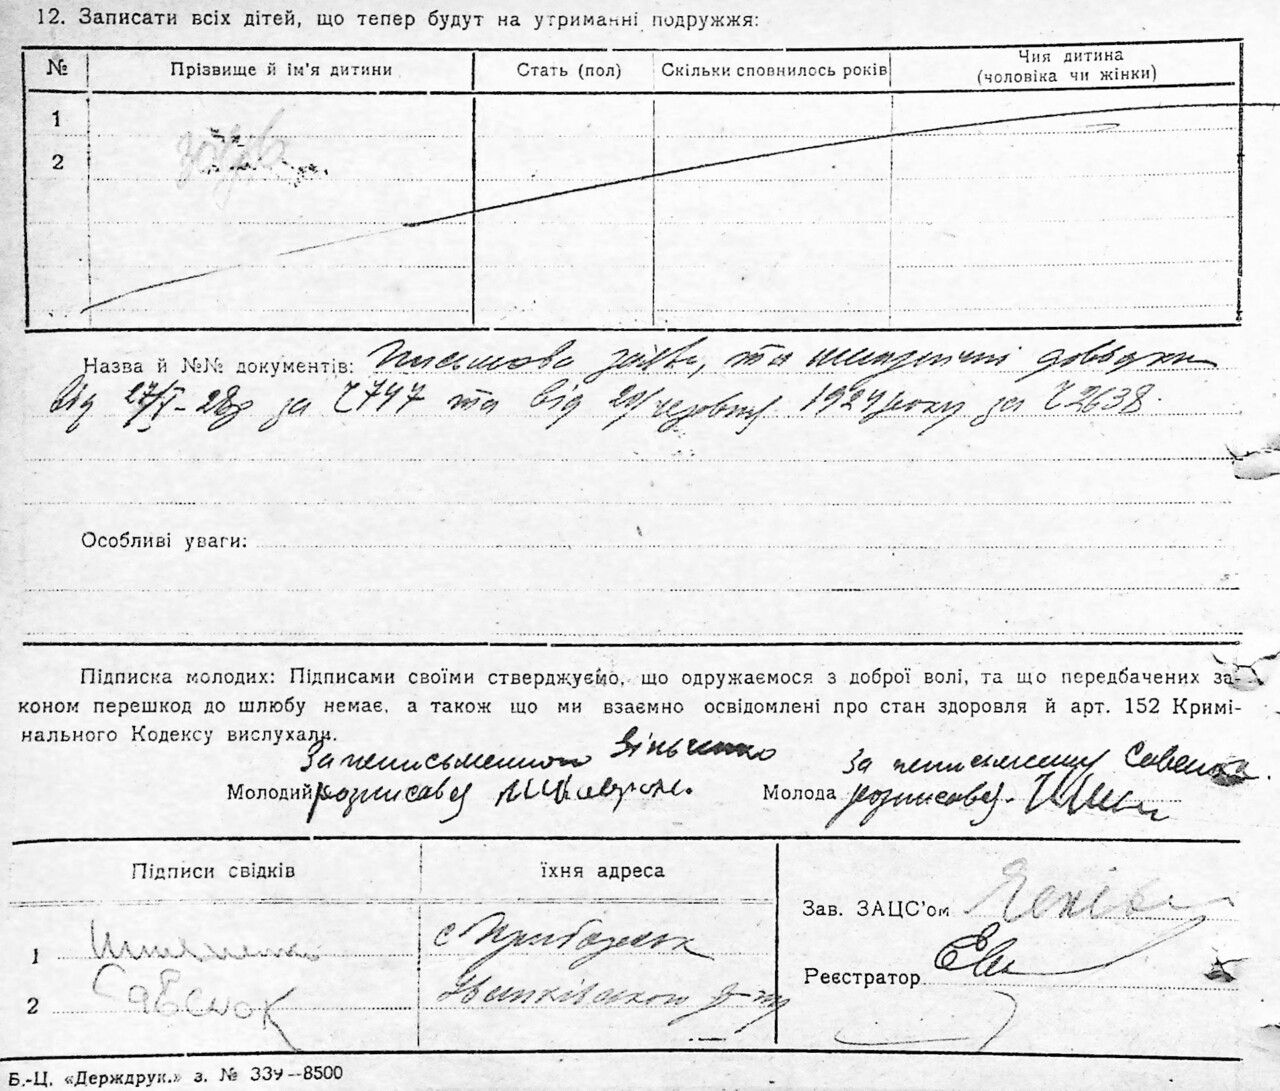 12. Записати всіх дітей, що тепер будут на утриманні подружжя:
№ Прізвище й ім'я дитини Стать (пол) Скільки сповнилось років Чия дитина
(чоловіка чи жінки)
1
2
Назва й №№ документів: Письмова заява, та довідки
від 27/V-28р за 2747 та від 1929 року за 2638.
Особливі уваги:
Підписка молодих: Підписами своїми стверджуємо, що одружаємося з доброї волі, та що передбачених за-
коном перешкод до шлюбу немає, а також що ми взаємно освідомлені про стан здоровля й арт. 152 Кримі-
нального Кодексу вислухали.
За неписьменного Вінченко за неписьменну Савенок.
Молодий розписався Молода розписався
Підписи свідків їхня адреса
Зав. ЗАЦС'ом
1 с
Реєстратор
2 Савенок Іванківського р-ну
Б.-Ц. «Держдрук.» з. № 339—8500